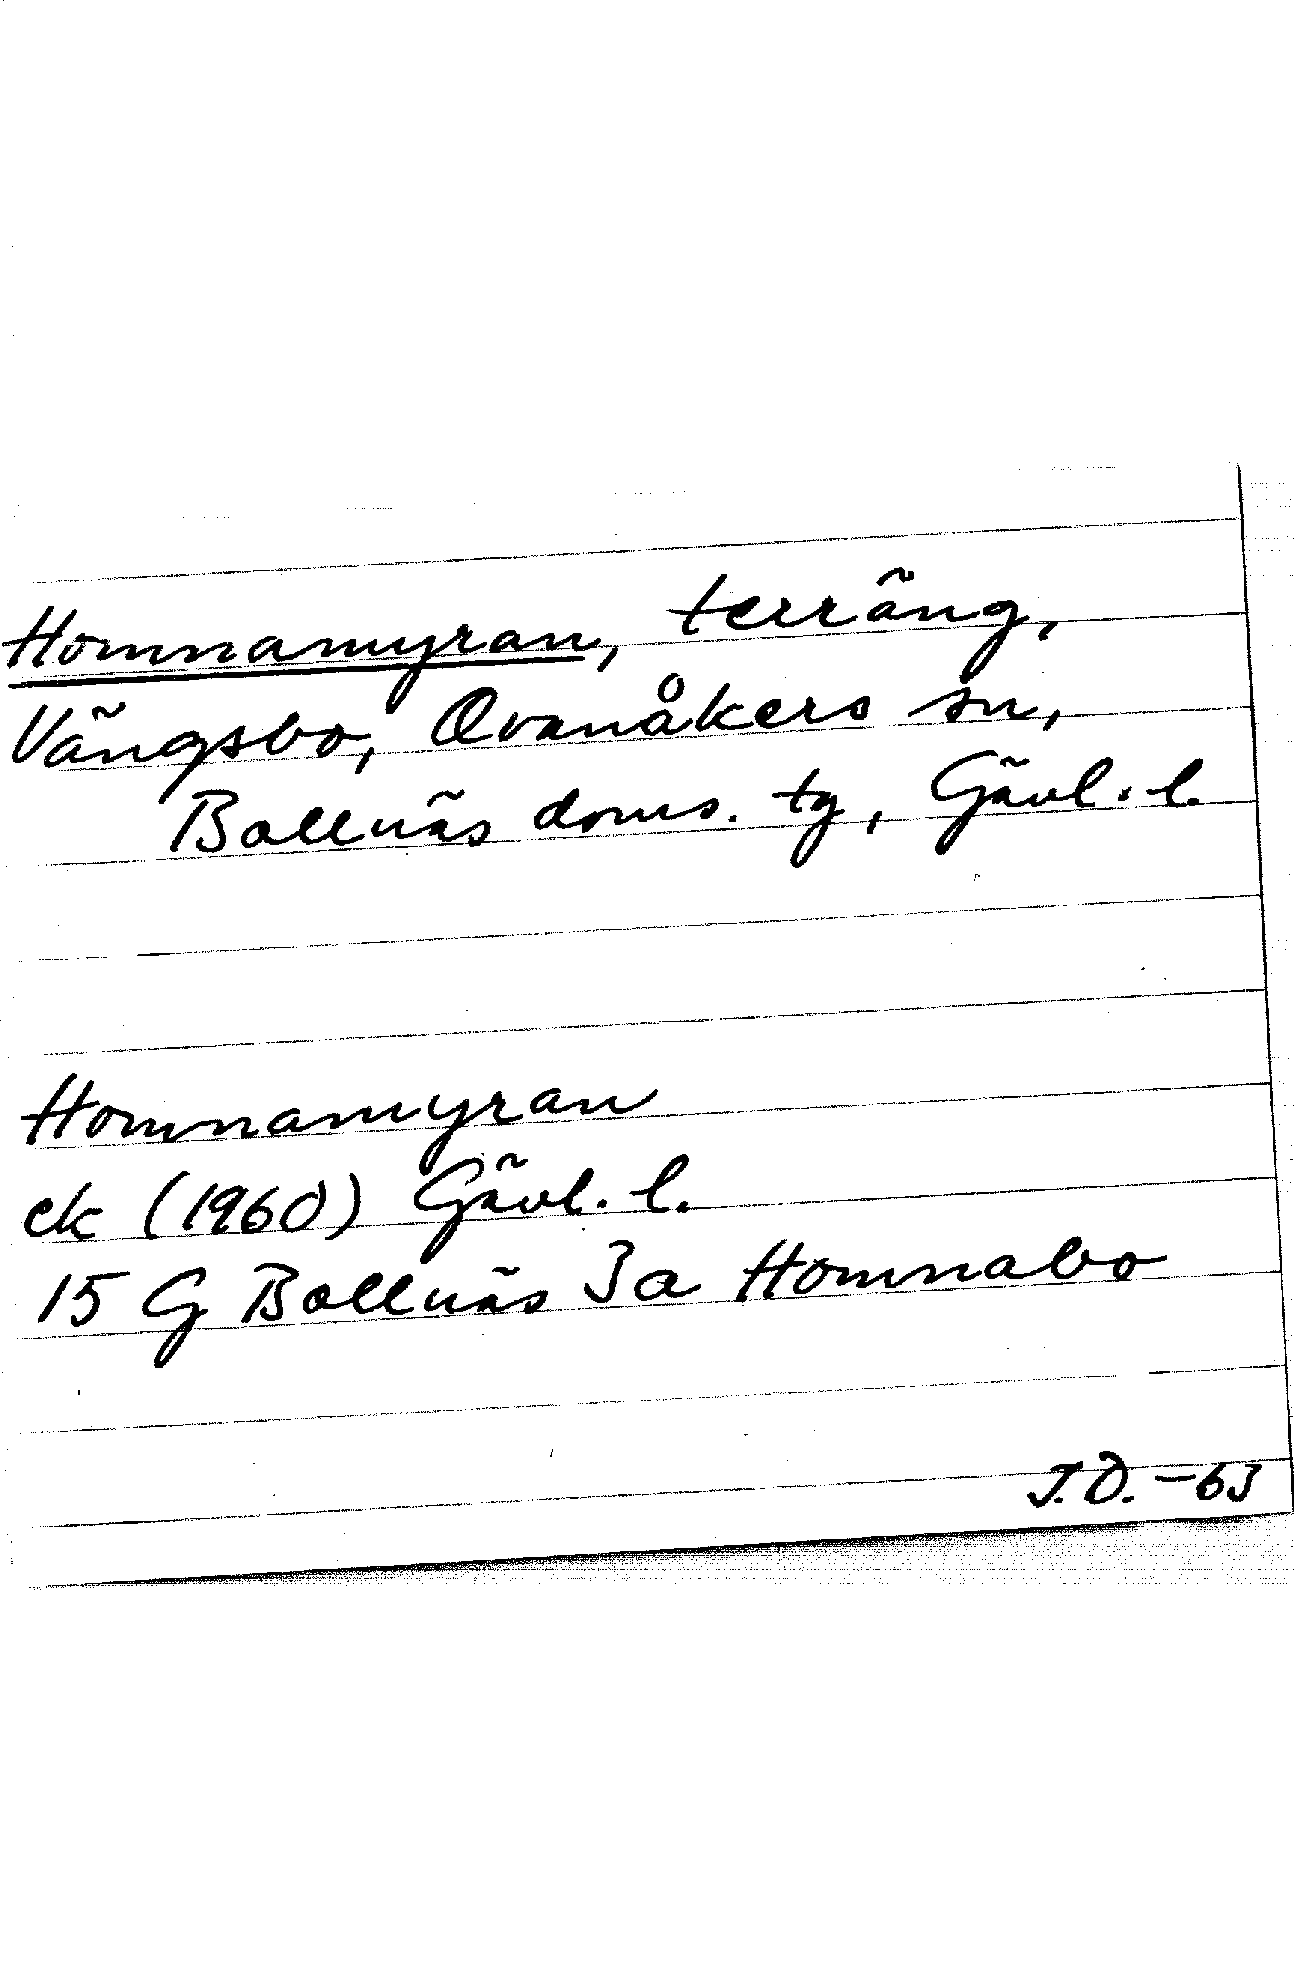 Homnamyran, terräng,
Vängsbo, Ovanåkers sn,
Bollnäs doms. tg, Gävl. l.
Homnamyran
ek (1960) Gävl. l.
15 G Bollnäs 3a Homnabo
J.D. -63